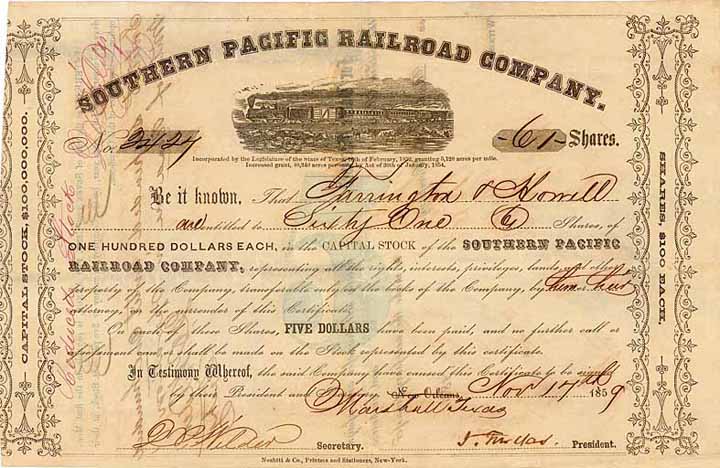 SOUTHERN PACIFIC RAILROAD COMPANY.
No. 2427
-61- Shares.
Incorporated by the Legislature of the State of Texas, 16th of February, 1852, granting 5,120 acres per mile.
Increased grant, 10,240 acres per mile, by Act of 30th of January, 1854.
Be it known, That Farrington & Howell
are entitled to Sixty One Shares, of
ONE HUNDRED DOLLARS EACH, in the CAPITAL STOCK of the SOUTHERN PACIFIC
RAILROAD COMPANY, representing all the rights, interests, privileges, lands and other
property of the Company, transferable only on the books of the Company, by their
attorney, on the surrender of this Certificate.
On each of these Shares, FIVE DOLLARS have been paid, and no further call or
assessment can, or shall be made on the Stock represented by this certificate.
In Testimony Whereof, the said Company have caused this Certificate to be signed
by their President and New Orleans, Nov 17th 1859
Marshall Texas
Secretary.
President.
Nesbitt & Co., Printers and Stationers, New-York.
CAPITAL STOCK, $100,000,000.
SHARES, $100 EACH.
Stock